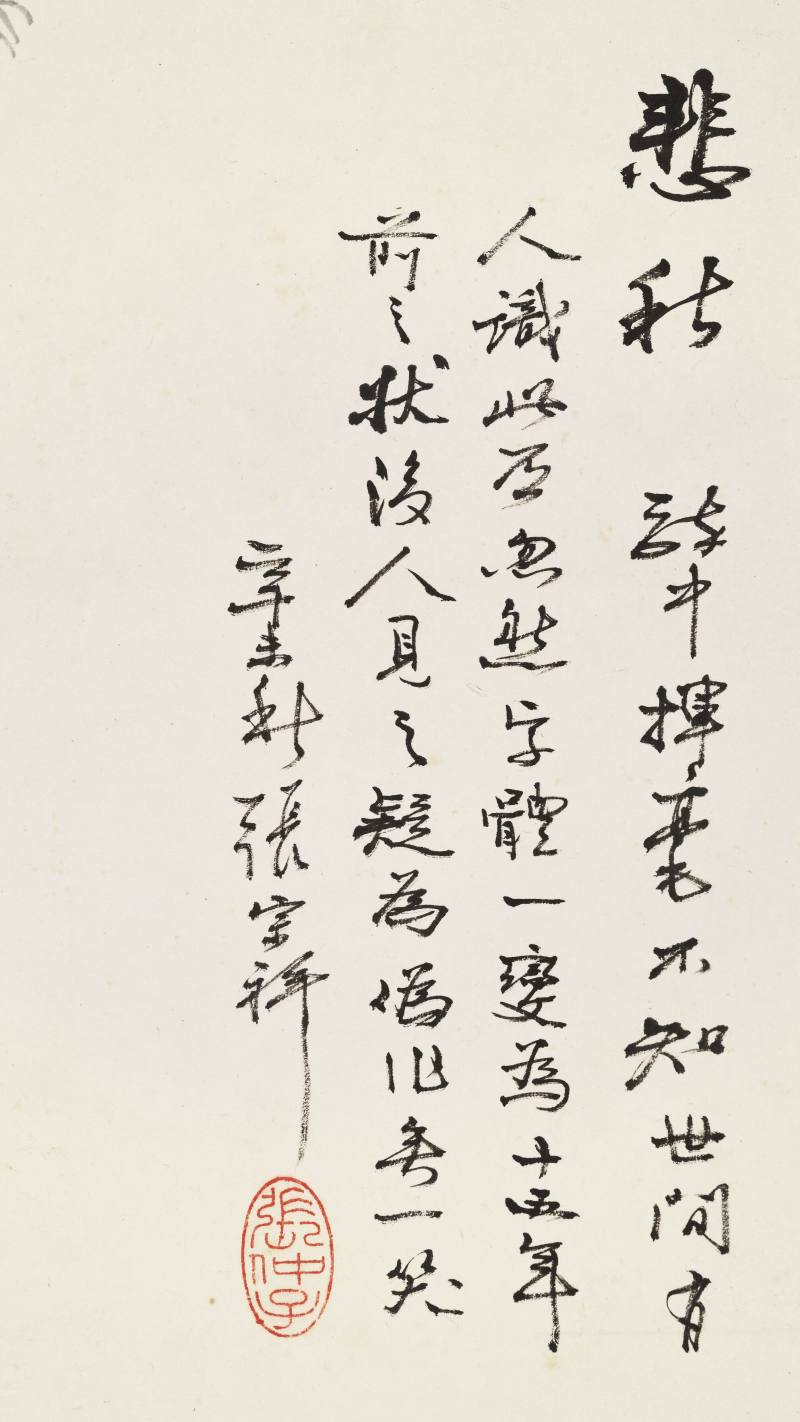 悲秋 醉中揮毫不知世間有
人識此否忽然字體一變為十五年
前之狀後人見之疑為偽作矣一笑
辛未秋張宗祥
張仲子